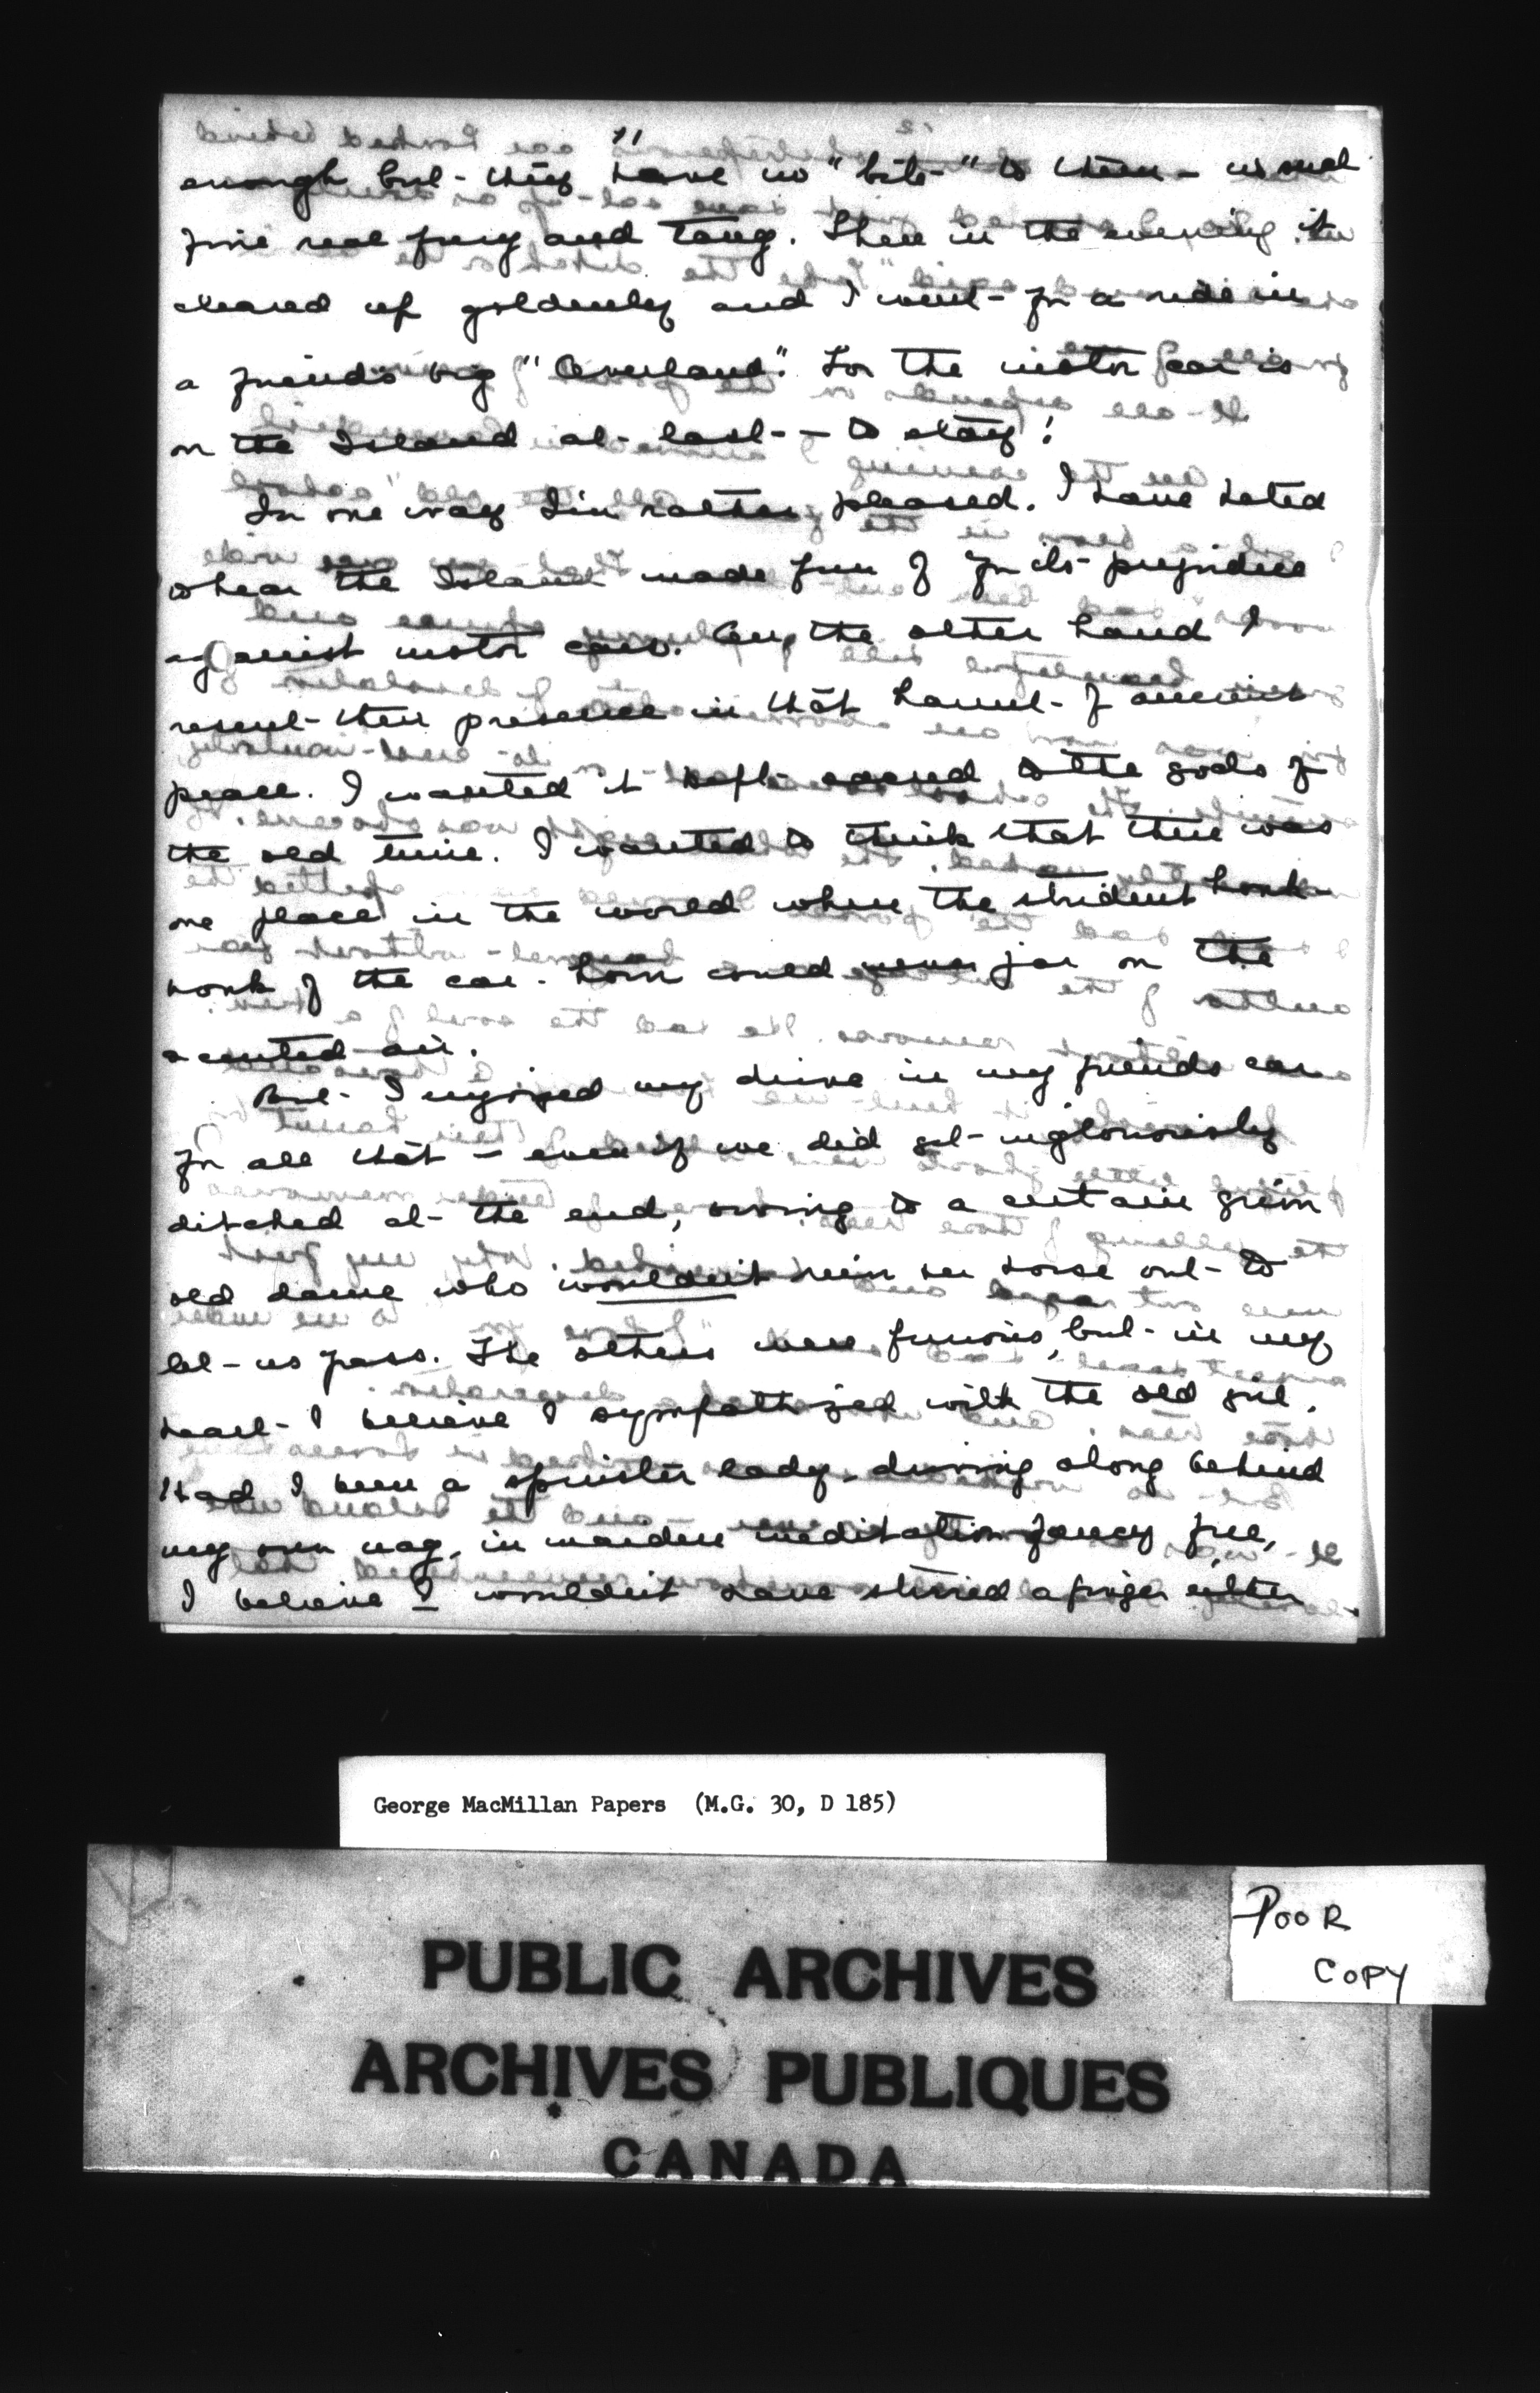 11
enough but they have no "bite" to them - no real
fine real and tang. Then in the evening it
cleared up goldenly and I went for a ride in
a friend's big "Overland". For the motor car is
on the Island at last - to stay!
In one way I'm rather pleased. I have hated
to hear the Island made fun of for its prejudice
against motor cars. On the other hand I
resent their presence in that haunt of ancient
peace. I wanted it kept sacred to the gods of
the old time. I wanted to think that there was
one place in the world where the strident honk-
honk of the car-horn could never jar on the
scented air.
But I enjoyed my drive in my friend's car
for all that - even if we did get ingloriously
ditched at the end, owing to a certain grim
old dame who wouldn't rein her horse out to
let us pass. The others were furious, but in my
heart I believe I sympathized with the old girl.
Had I been a spinster lady, driving along behind
my own nag, in maiden meditation fancy free,
I believe I wouldn't have stirred a finger either
George MacMillan Papers (M.G. 30, D 185)
POOR
COPY
PUBLIC ARCHIVES
ARCHIVES PUBLIQUES
CANADA